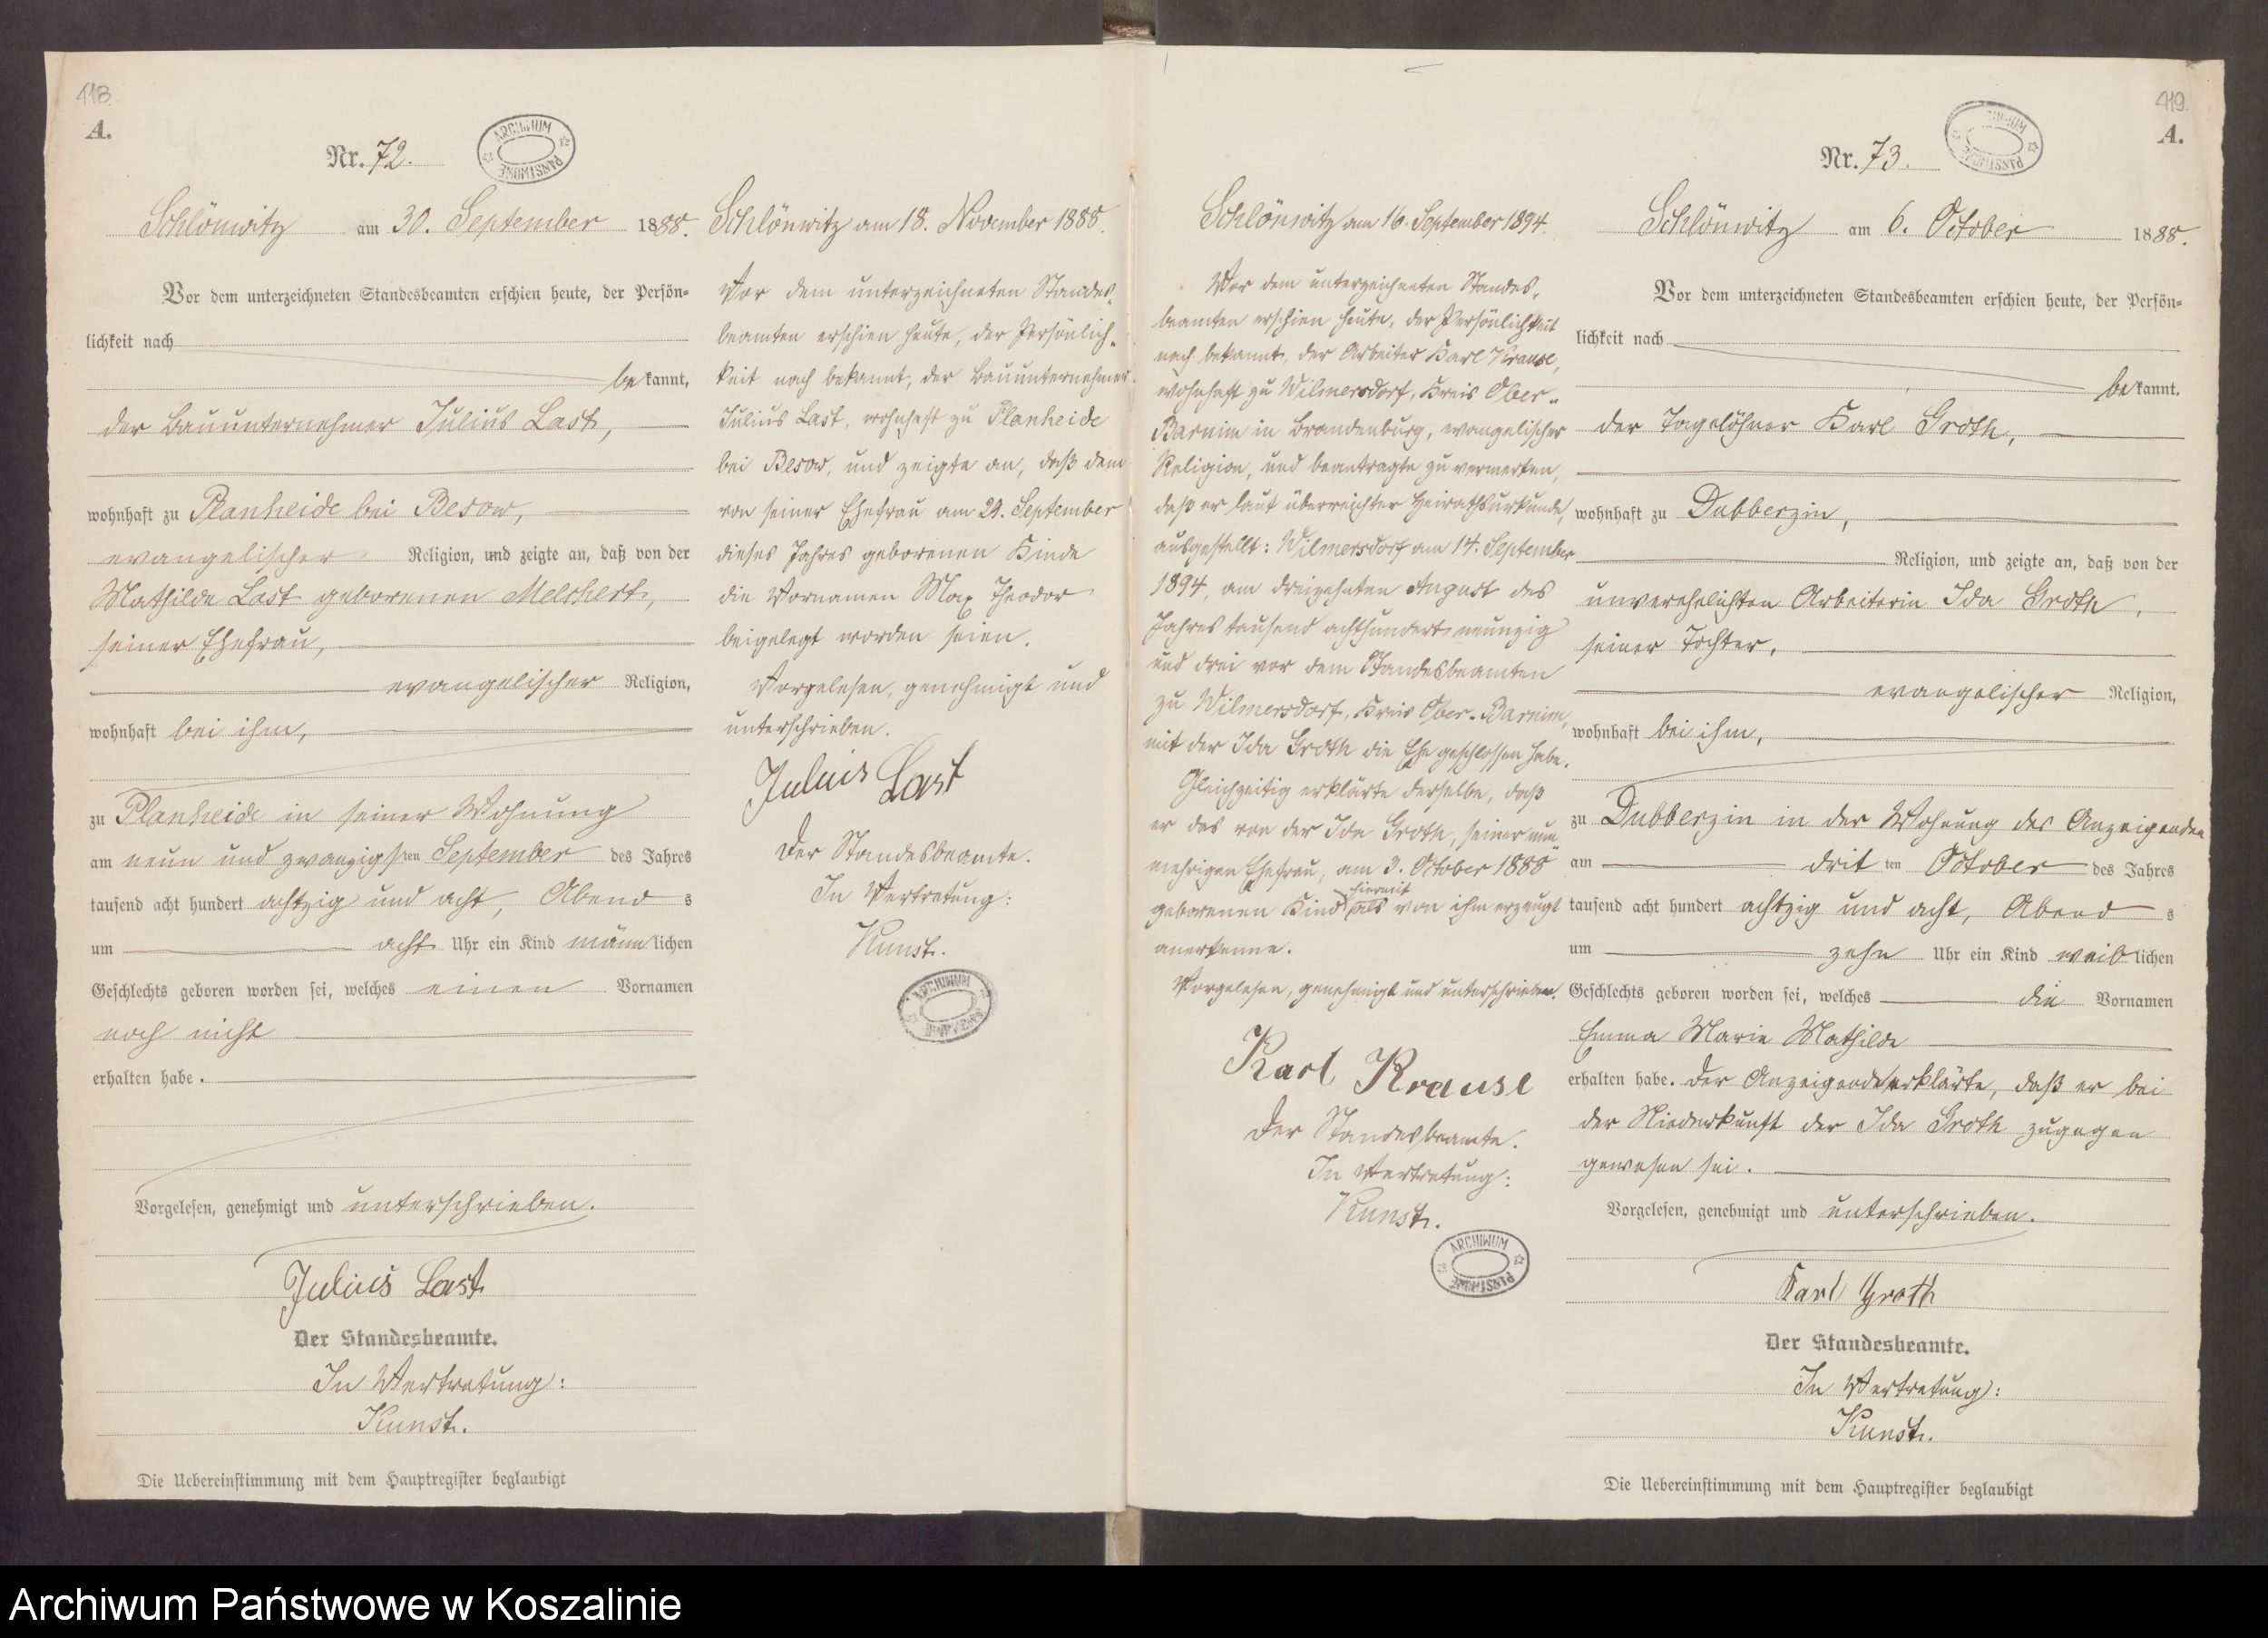 418.
A.
Nr. 72.
ARCHIWUM PAŃSTWOWE
Schlönwitz am 30. September 1888.
Vor dem unterzeichneten Standesbeamten erschien heute, der Persön-
lichkeit nach
be kannt,
der Bauunternehmer Julius Last,
wohnhaft zu Planheide bei Besow,
evangelischer Religion, und zeigte an, daß von der
Mathilde Last geborenen Melchert,
seiner Ehefrau,
evangelischer Religion,
wohnhaft bei ihm,
zu Planheide in seiner Wohnung
am neun und zwanzigsten September des Jahres
tausend acht hundert achtzig und acht, Abend s
um acht Uhr ein Kind männlichen
Geschlechts geboren worden sei, welches einen Vornamen
noch nicht
erhalten habe.
Vorgelesen, genehmigt und unterschrieben.
Julius Last
Der Standesbeamte.
In Vertretung:
Kunst.
Die Uebereinstimmung mit dem Hauptregister beglaubigt
Schlönwitz am 18. November 1888.
Vor dem unterzeichneten Standes-
beamten erschien heute, der Persönlich-
keit nach bekannt, der Bauunternehmer
Julius Last, wohnhaft zu Planheide
bei Besow, und zeigte an, daß dem
von seiner Ehefrau am 29. September
dieses Jahres geborenen Kinde
die Vornamen Max Theodor
beigelegt worden seien.
Vorgelesen, genehmigt und
unterschrieben.
Julius Last
Der Standesbeamte.
In Vertretung:
Kunst.
ARCHIWUM PAŃSTWOWE
Schlönwitz am 16. September 1894.
Vor dem unterzeichneten Standes-
beamten erschien heute, der Persönlichkeit
nach bekannt, der Arbeiter Karl Krause,
wohnhaft zu Wilmersdorf, Kreis Ober-
Barnim in Brandenburg, evangelischer
Religion, und beantragte zu vermerken,
daß er laut überreichter Heirathsurkunde,
ausgestellt: Wilmersdorf am 14. September
1894, am dreizehnten August des
Jahres tausend achthundert neunzig
und drei vor dem Standesbeamten
zu Wilmersdorf, Kreis Ober-Barnim,
mit der Ida Groth die Ehe geschlossen habe.
Gleichzeitig erklärte derselbe, daß
er das von der Ida Groth, seiner nun-
mehrigen Ehefrau, am 3. October 1888
geborenen Kind hiermit als von ihm erzeugt
anerkenne.
Vorgelesen, genehmigt und unterschrieben.
Karl Krause
Der Standesbeamte.
In Vertretung:
Kunst.
ARCHIWUM PAŃSTWOWE
419.
A.
Nr. 73.
ARCHIWUM PAŃSTWOWE
Schlönwitz am 6. October 1888.
Vor dem unterzeichneten Standesbeamten erschien heute, der Persön-
lichkeit nach
be kannt,
der Tagelöhner Karl Groth,
wohnhaft zu Dubberzin,
Religion, und zeigte an, daß von der
unverehelichten Arbeiterin Ida Groth,
seiner Tochter,
evangelischer Religion,
wohnhaft bei ihm,
zu Dubberzin in der Wohnung des Anzeigenden
am drit ten October des Jahres
tausend acht hundert achtzig und acht, Abend s
um zehn Uhr ein Kind weiblichen
Geschlechts geboren worden sei, welches die Vornamen
Emma Marie Mathilde
erhalten habe. Der Anzeigende erklärte, daß er bei
der Niederkunft der Ida Groth zugegen
gewesen sei.
Vorgelesen, genehmigt und unterschrieben.
Karl Groth
Der Standesbeamte.
In Vertretung:
Kunst.
Die Uebereinstimmung mit dem Hauptregister beglaubigt
Archiwum Państwowe w Koszalinie